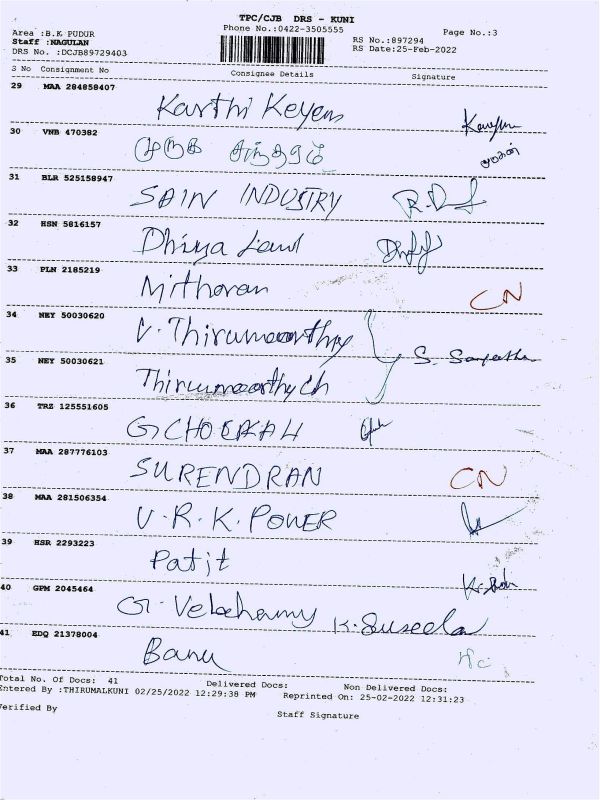 TPC/CJB DRS - KUNI
Phone No.:0422-3505555
Page No.:3
Area :B.K PUDUR
Staff :NAGULAN
DRS No. :DCJB89729403
RS No.:897294
RS Date:25-Feb-2022
S No Consignment No Consignee Details Signature
29 MAA 284858407 Karthi Keyen
30 VNB 470382
31 BLR 525158947 SAIN INDUSTRY
32 HSN 5816157 Dhivya
33 PLN 2185219 Mithoran CN
34 NEY 50030620 V. Thirumoorthy
35 NEY 50030621 Thirumoorthy Ch S.
36 TRZ 125551605
37 MAA 287776103 SURENDRAN CN
38 MAA 281506354 V.R.K. POWER
39 HSR 2293223 Patit
40 GPM 2045464 G. K. Suseela
41 EDQ 21378004 Banu
Total No. Of Docs: 41 Delivered Docs: Non Delivered Docs:
Entered By :THIRUMALKUNI 02/25/2022 12:29:38 PM Reprinted On: 25-02-2022 12:31:23
Verified By
Staff Signature